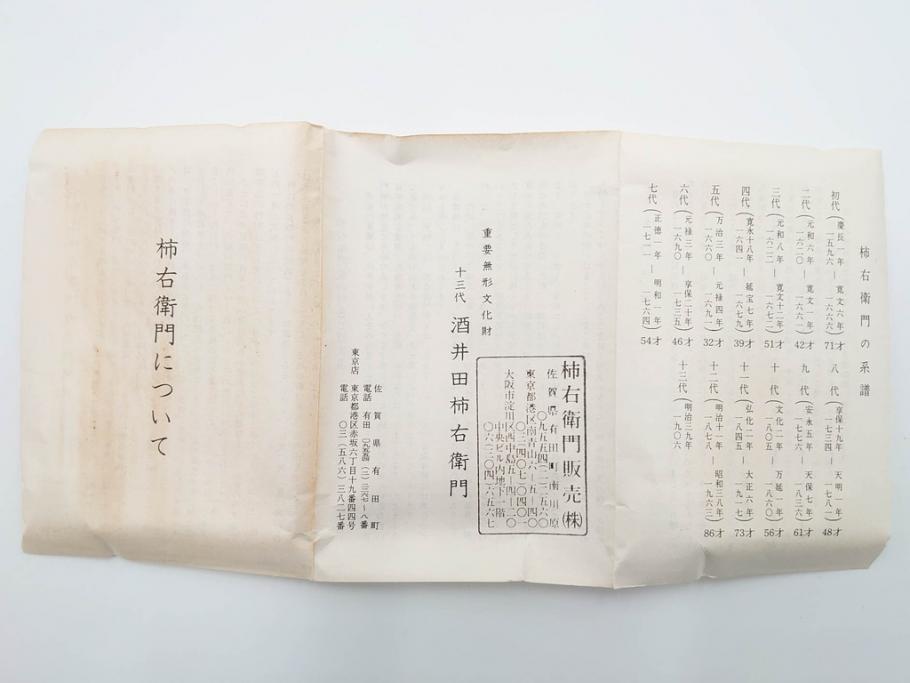 柿右衛門の系譜
初代(慶長一年一五九六―寛文六年一六六六)71才
二代(元和六年一六二〇―寛文一年一六六一)42才
三代(元和八年一六二二―寛文十二年一六七二)51才
四代(寛永十八年一六四一―延宝七年一六七九)39才
五代(万治三年一六六〇―元禄四年一六九一)32才
六代(元禄三年一六九〇―享保二十年一七三五)46才
七代(正徳一年一七一一―明和一年一七六四)54才
八代(享保十九年一七三四―天明一年一七八一)48才
九代(安永五年一七七六―天保七年一八三六)61才
十代(文化二年一八〇五―万延一年一八六〇)56才
十一代(弘化二年一八四五―大正六年一九一七)73才
十二代(明治十一年一八七八―昭和三八年一九六三)86才
十三代(明治三九年一九〇六
重要無形文化財
十三代 酒井田柿右衛門
佐賀県有田町
電話 有田
東京店 東京都港区赤坂六丁目十九番四四号
電話 〇三(五八六)三八二七番
柿右衛門販売(株)
佐賀県有田町南川原
東京都港区南青山六―五―四〇
大阪市淀川区西中島五―四―二〇
中央ビル内地下一階
柿右衛門について